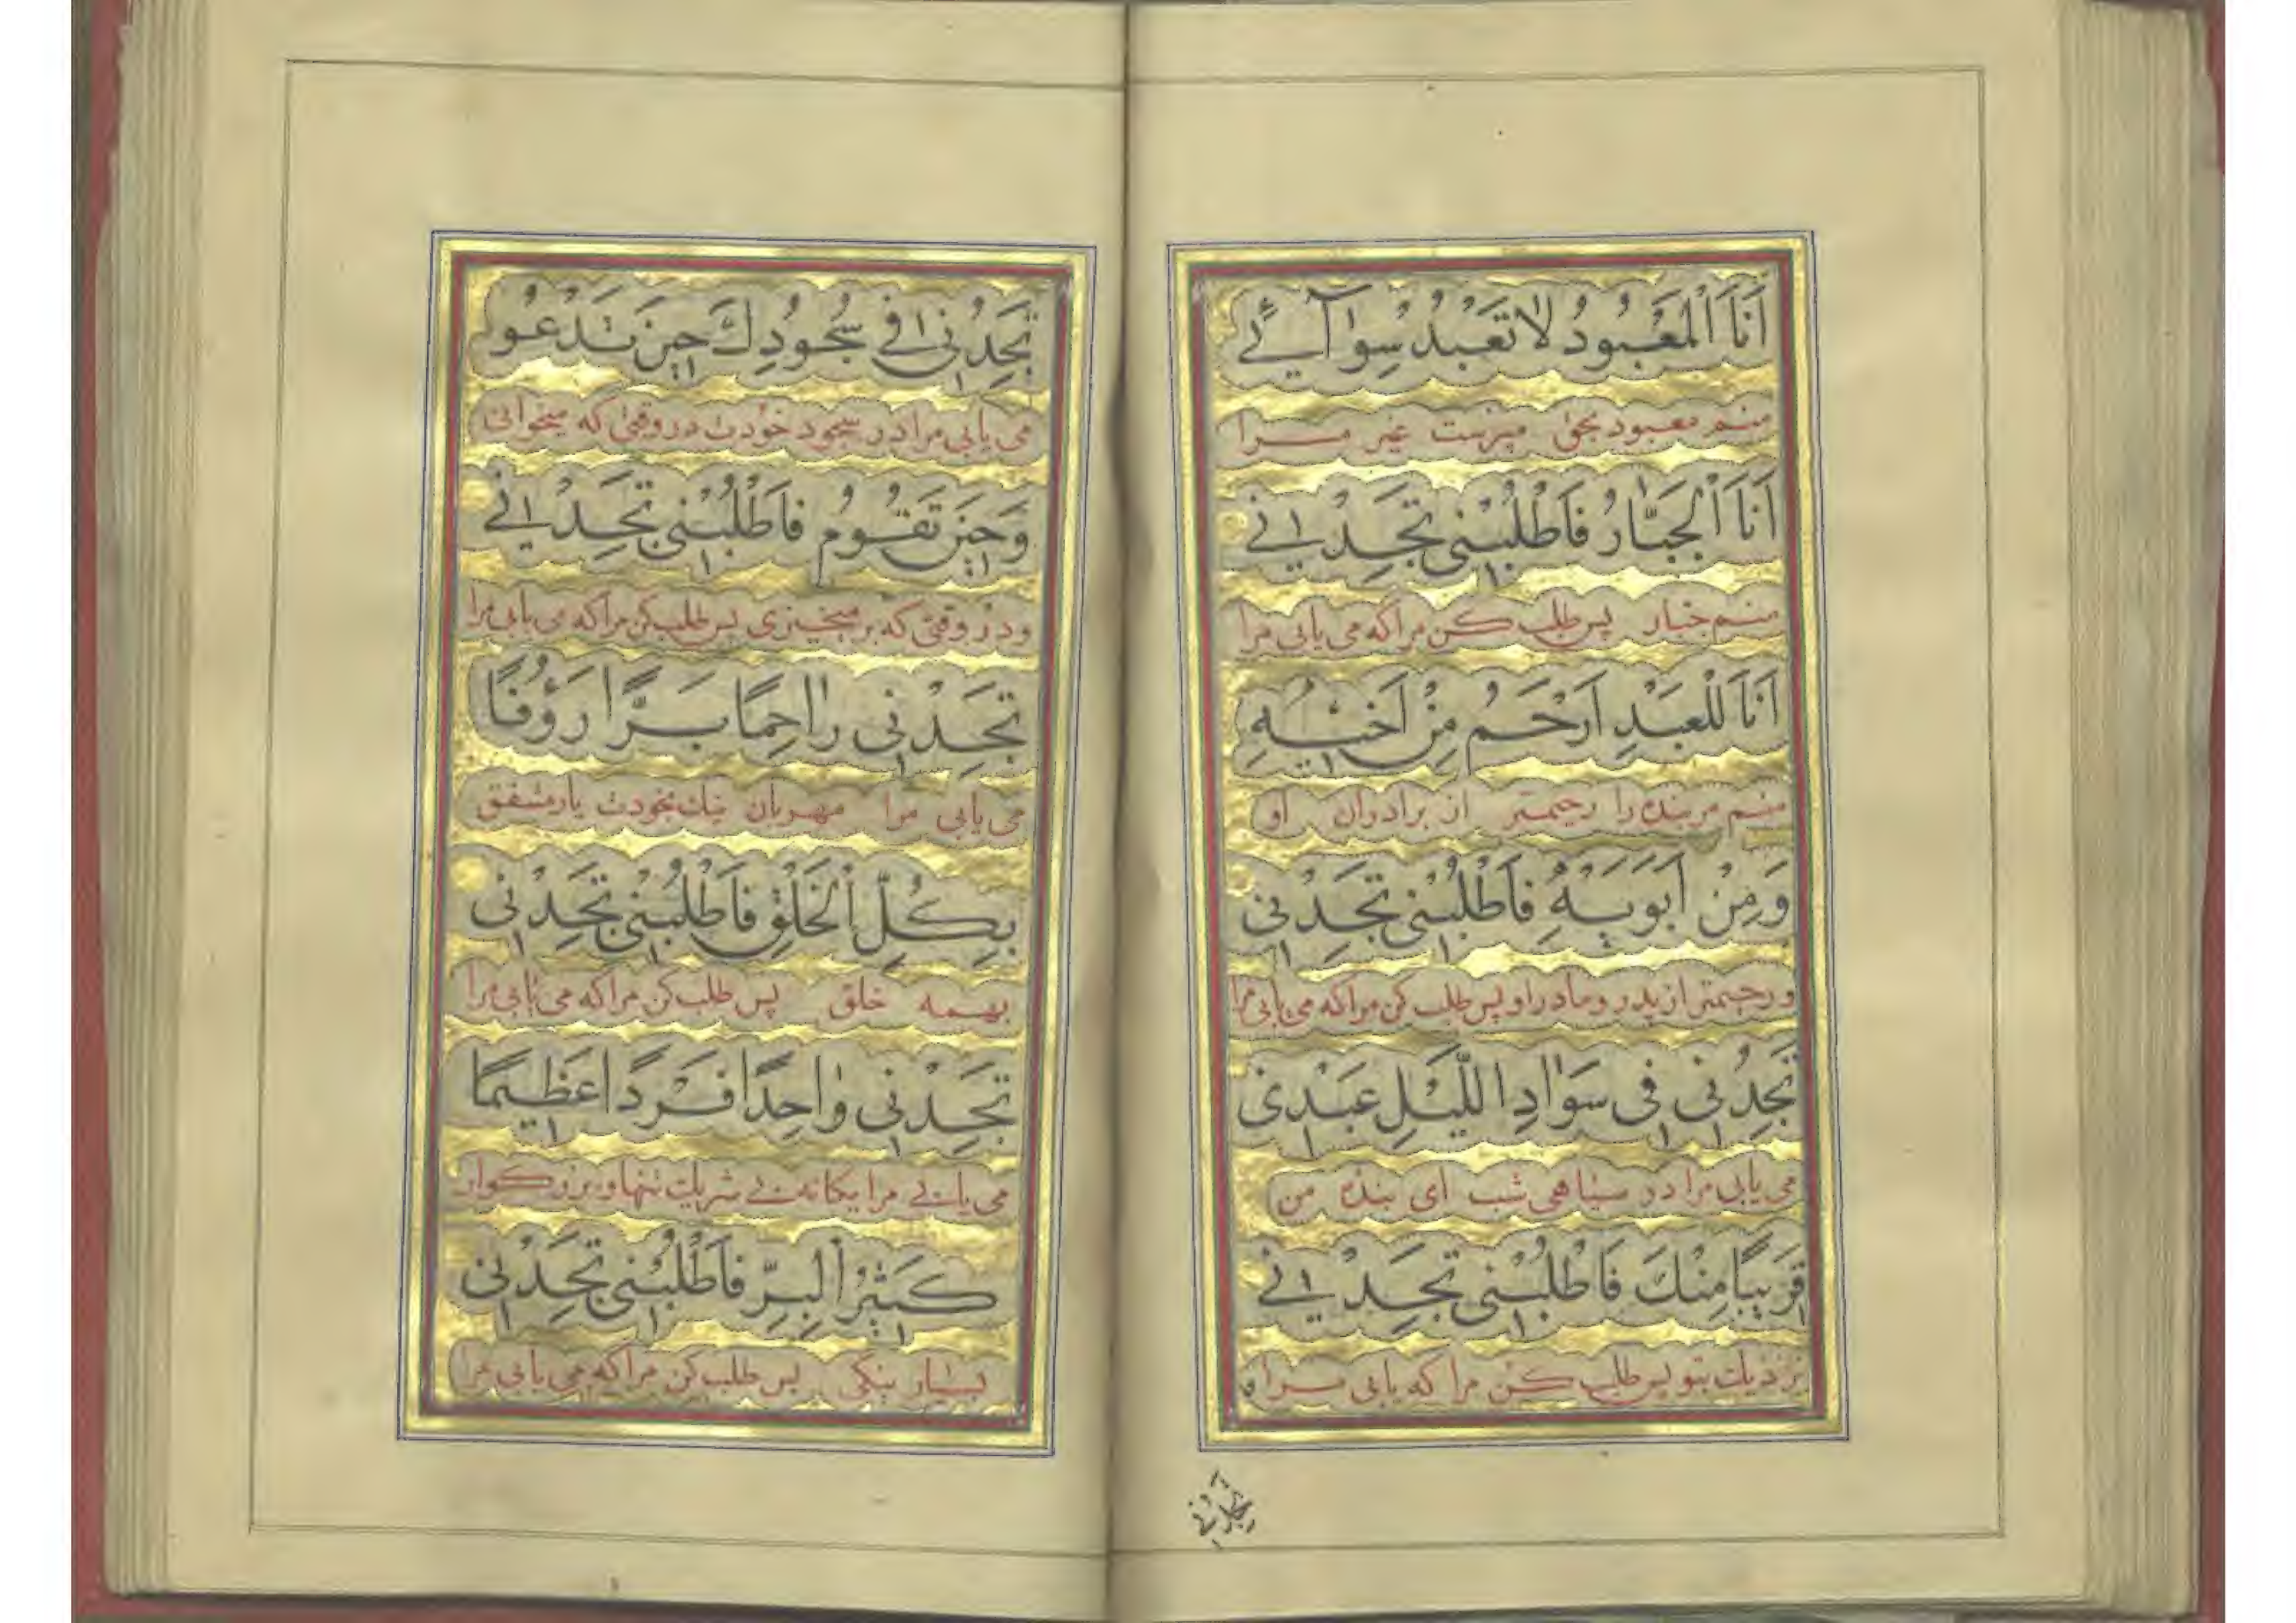 اَنَا اَلْمَعْبُودُ لٰا تَعْبُدْ سِوٰآئے
منم معبود بحق مپرست غیر مرا
اَنَا اَلْجَبّٰارُ فَاَطْلُبْنٖى تَجِدْنٖے
منم جبار پس طلب کن مرا که می یابی مرا
اَنَا لِلْعَبْدِ اَرْحَمُ مِنْ اَخٖیْهِ
منم مر بنده را رحیمتر از برادران او
وَمِنْ اَبَوَیْهِ فَاَطْلُبْنٖى تَجِدْنٖى
و رحیمتر از پدر و مادر او پس طلب کن مرا که می یابی مرا
تَجِدْنٖى فٖى سَوٰادِ اللَّیْلِ عَبْدٖى
می یابی مرا در سیاهی شب ای بنده من
قَرٖیبًا مِنْكَ فَاَطْلُبْنٖى تَجِدْنٖے
نزدیك بتو پس طلب کن مرا که یابی مرا
تجدنی
تَجِدْنٖى فٖے سُجُودِكَ حٖینَ تَدْعُو
می یابی مرا در سجود خودت در وقتی که میخوانی
وَحٖینَ تَقُومُ فَاَطْلُبْنٖى تَجِدْنٖے
و در وقتی که بر میخیزی پس طلب کن مرا که می یابی مرا
تَجِدْنٖى رٰاحِمًا بَرًّا رَؤُفًا
می یابی مرا مهربان نیك بخودت یار مشفق
بِكُلِّ اَلْخَلْقِ فَاَطْلُبْنٖى تَجِدْنٖى
بهمه خلق پس طلب کن مرا که می یابی مرا
تَجِدْنٖى وٰاحِدًا فَرْدًا عَظٖیمًا
می یابے مرا یکانه بے شریك تنها و بزرکوار
كَثٖیرُ اَلْبِرِّ فَاَطْلُبْنٖى تَجِدْنٖى
بسیار نیکی پس طلب کن مرا که می یابی مرا